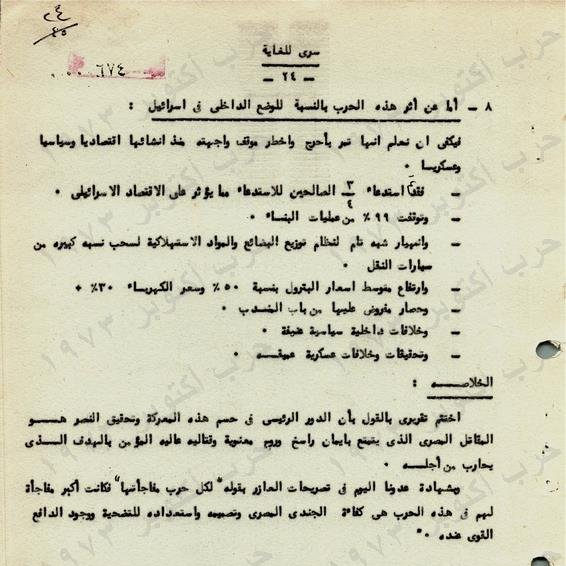 ٢٤
٤٥
سرى للغاية
٠٠٠ ٦٧٤
— ٢٤ —
٨ — أما عن أثر هذه الحرب بالنسبة للوضع الداخلى فى اسرائيل :
فيكفى ان نعلم انها تمر بأحرج واخطر موقف واجهته منذ انشائها اقتصاديا وسياسيا
وعسكريا ٠
— فقد استدعاء ٣/٤ الصالحين للاستدعاء مما يؤثر على الاقتصاد الاسرائيلى ٠
— وتوقفت ٩٩٪ من عمليات البناء ٠
— وانهيار شبه تام لنظام توزيع البضائع والمواد الاستهلاكية لسحب نسبه كبيره من
سيارات النقل ٠
— وارتفاع متوسط اسعار البترول بنسبة ٥٠٪ وسعر الكهرباء ٣٠٪ +
— وحصار مفروض عليها من باب المندب ٠
— وخلافات داخلية سياسية عنيفة ٠
— وتحقيقات وخلافات عسكرية عميقه ٠
الخلاصه :
اختتم تقريرى بالقول بأن الدور الرئيسى فى حسم هذه المعركة وتحقيق النصر هو
المقاتل المصرى الذى يتمتع بايمان راسخ وروح معنوية وقتاليه عاليه المؤمن بالهدف الذى
يحارب من أجله ٠
وبشهادة عدونا اليوم فى تصريحات العازر بقوله "لكل حرب مفاجأتها" فكانت أكبر مفاجأة
لهم فى هذه الحرب هى كفاءة الجندى المصرى وتصميمه واستعداده للتضحية ووجود الدافع
القوى عنده ٠"
حرب أكتوبر ١٩٧٣